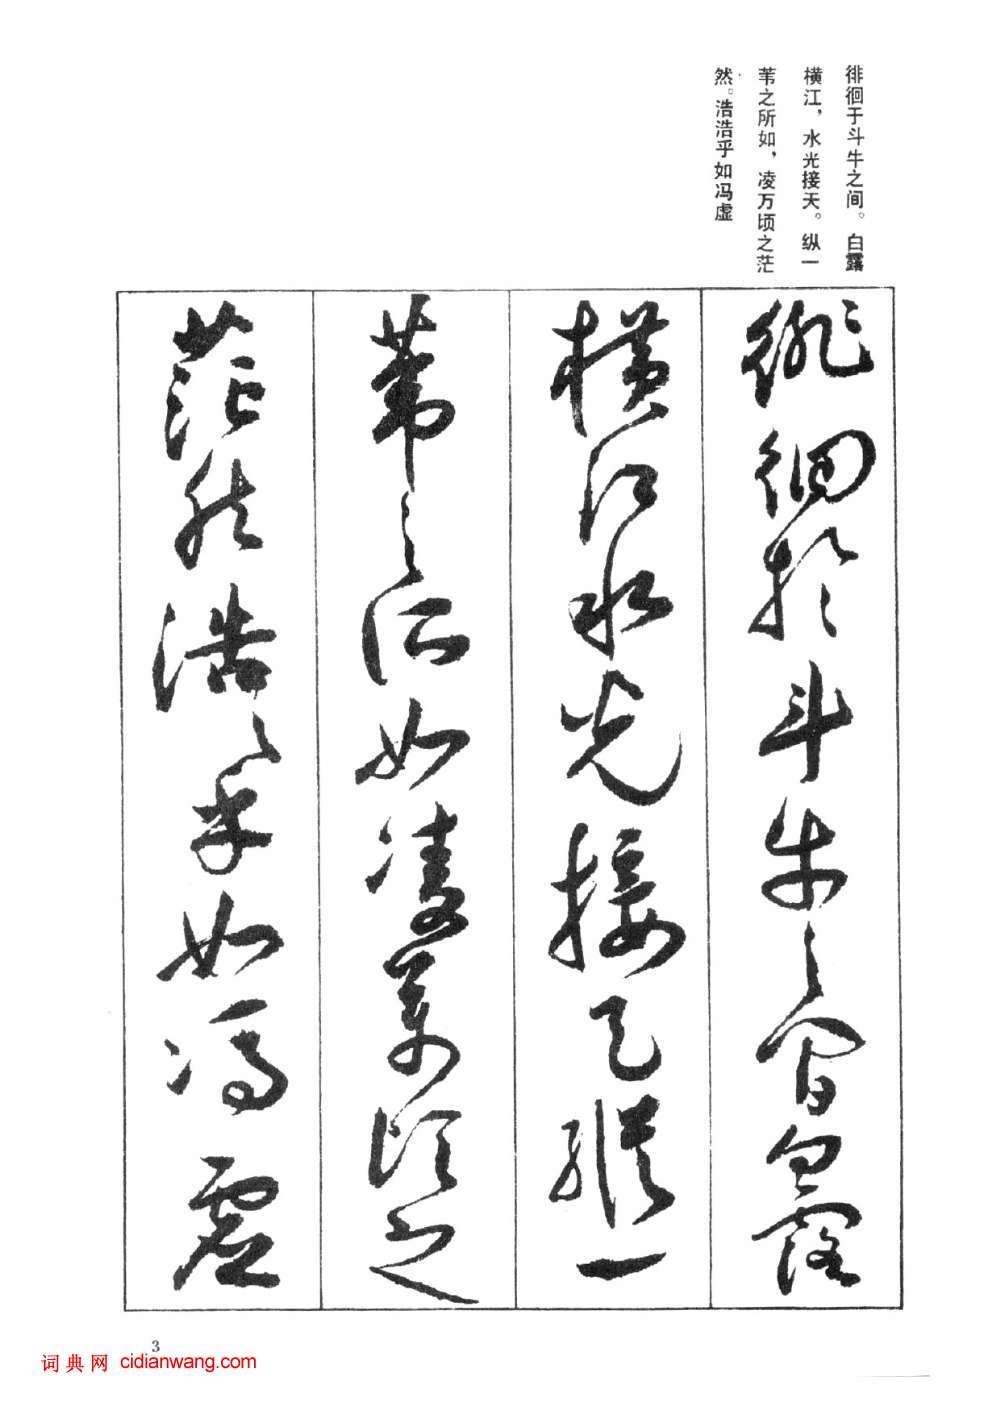 徘徊于斗牛之间。白露
横江，水光接天。纵一
苇之所如，凌万顷之茫
然。浩浩乎如冯虚
徘徊於斗牛之间白露
横江水光接天纵一
苇之所如凌万顷之
茫然浩〻乎如冯虚
3
词典网 cidianwang.com